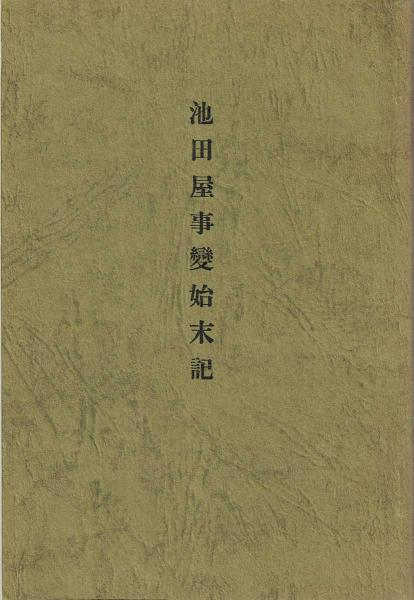 池田屋事變始末記